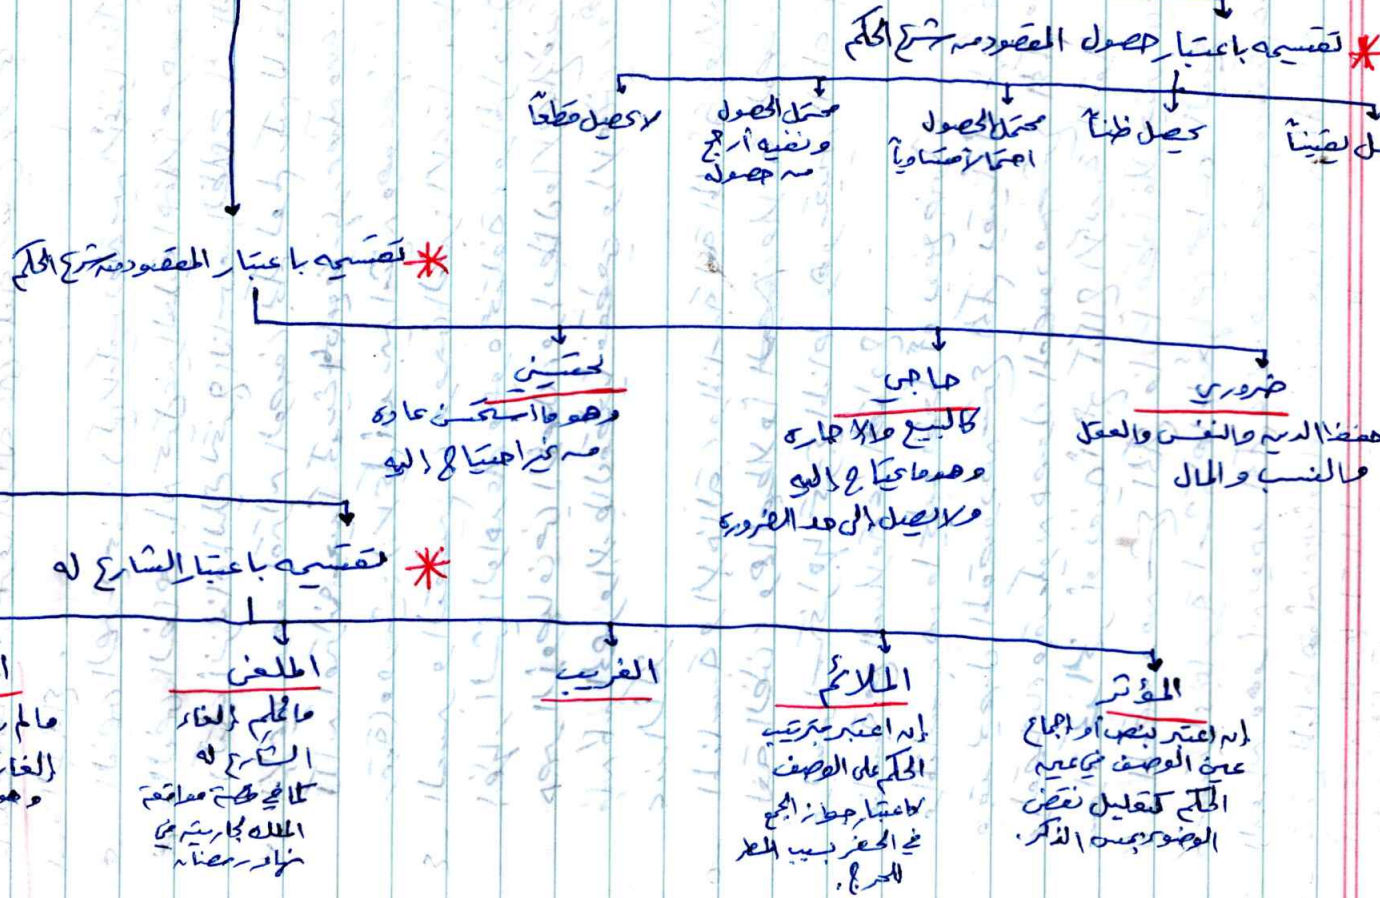 تقسيمه باعتبار حصول المقصود من شرع الحكم
يقيناً
يحصل ظناً
محتمل الحصول
احتمالاً متساوياً
محتمل الحصول
ونفيه أرجح
من حصوله
لا يحصل قطعاً
تقسيمه باعتبار المقصود من شرع الحكم
ضروري
حفظ الدين والنفس والعقل
والنسب والمال
حاجي
كالبيع والإجارة
وهو ما يحتاج إليه
ولا يصل إلى حد الضرورة
تحسيني
وهو ما استحسن عادة
من غير احتياج إليه
تقسيمه باعتبار الشارع له
المؤثر
إن اعتبر بنص أو إجماع
عين الوصف في عين
الحكم كتعليل نقض
الوضوء بمس الذكر.
الملائم
إن اعتبر بترتيب
الحكم على الوصف
كاعتبار جواز الجمع
في الحضر بسبب المطر
للحرج.
الغريب
الملغى
ما علم إلغاء
الشارع له
كما في قصة مواقعة
الملك لجاريته في
نهار رمضان
مالم